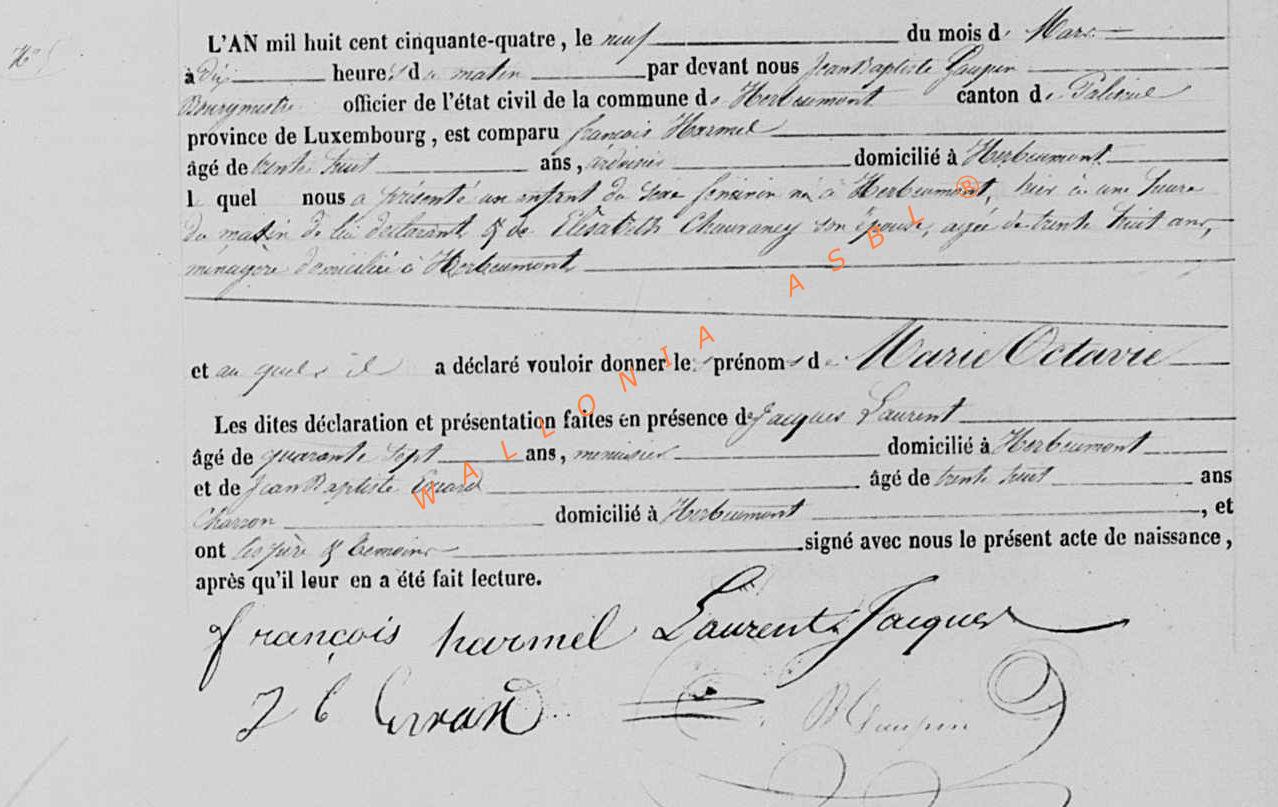 N° 5
L'AN mil huit cent cinquante-quatre, le neuf du mois de Mars
à Dix heures du matin par devant nous Jean Baptiste
Bourgmestre officier de l'état civil de la commune d'Herbeumont canton de Paliseul
province de Luxembourg, est comparu françois Harmel
âgé de trente huit ans, ardoisier domicilié à Herbeumont
l quel nous a présenté un enfant du sexe féminin né à Herbeumont, hier à une heure
du matin de lui déclarant & de Elisabeth son épouse, agée de trente huit ans,
menagere domiciliée à Herbeumont
et au quel il a déclaré vouloir donner les prénoms de Marie Octavie
Les dites déclaration et présentation faites en présence de Jacques Laurent
âgé de quarante sept ans, menuisier domicilié à Herbeumont
et de Jean Baptiste âgé de trente huit ans
Charron domicilié à Herbeumont, et
ont les père & temoins signé avec nous le présent acte de naissance,
après qu'il leur en a été fait lecture.
françois harmel Laurent Jacques
J B
WALLONIA ASBL ®